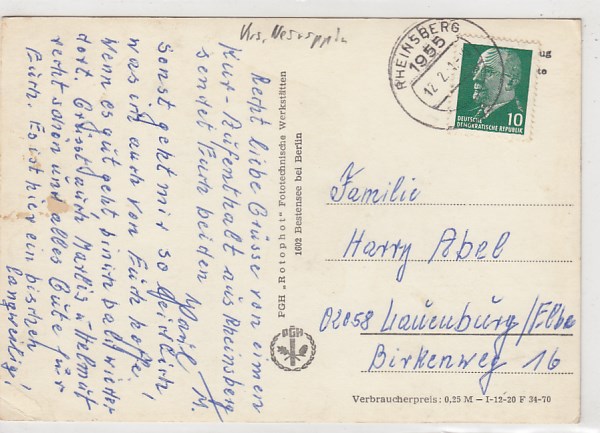 Krs. Neuruppin
Recht liebe Grüsse von einem
Kur-Aufenthalt aus Rheinsberg
sendet Euch beiden
M.
Sonst geht mir so
was ich auch von Euch hoffe.
Wenn es gut geht bin ich bald wieder
dort. Grüsst auch Marlis u. Helmut
recht schön und alles Gute für
Euch. Es ist hier ein bischen
langweilig!
PGH „Rotophot" Fototechnische Werkstätten
1602 Bestensee bei Berlin
PGH
RHEINSBERG
1955
12.2.
DEUTSCHE
DEMOKRATISCHE REPUBLIK
10
ug
te
Familie
Harry Abel
02058 Lauenburg/Elbe
Birkenweg 16
Verbraucherpreis: 0,25 M — I-12-20 F 34-70